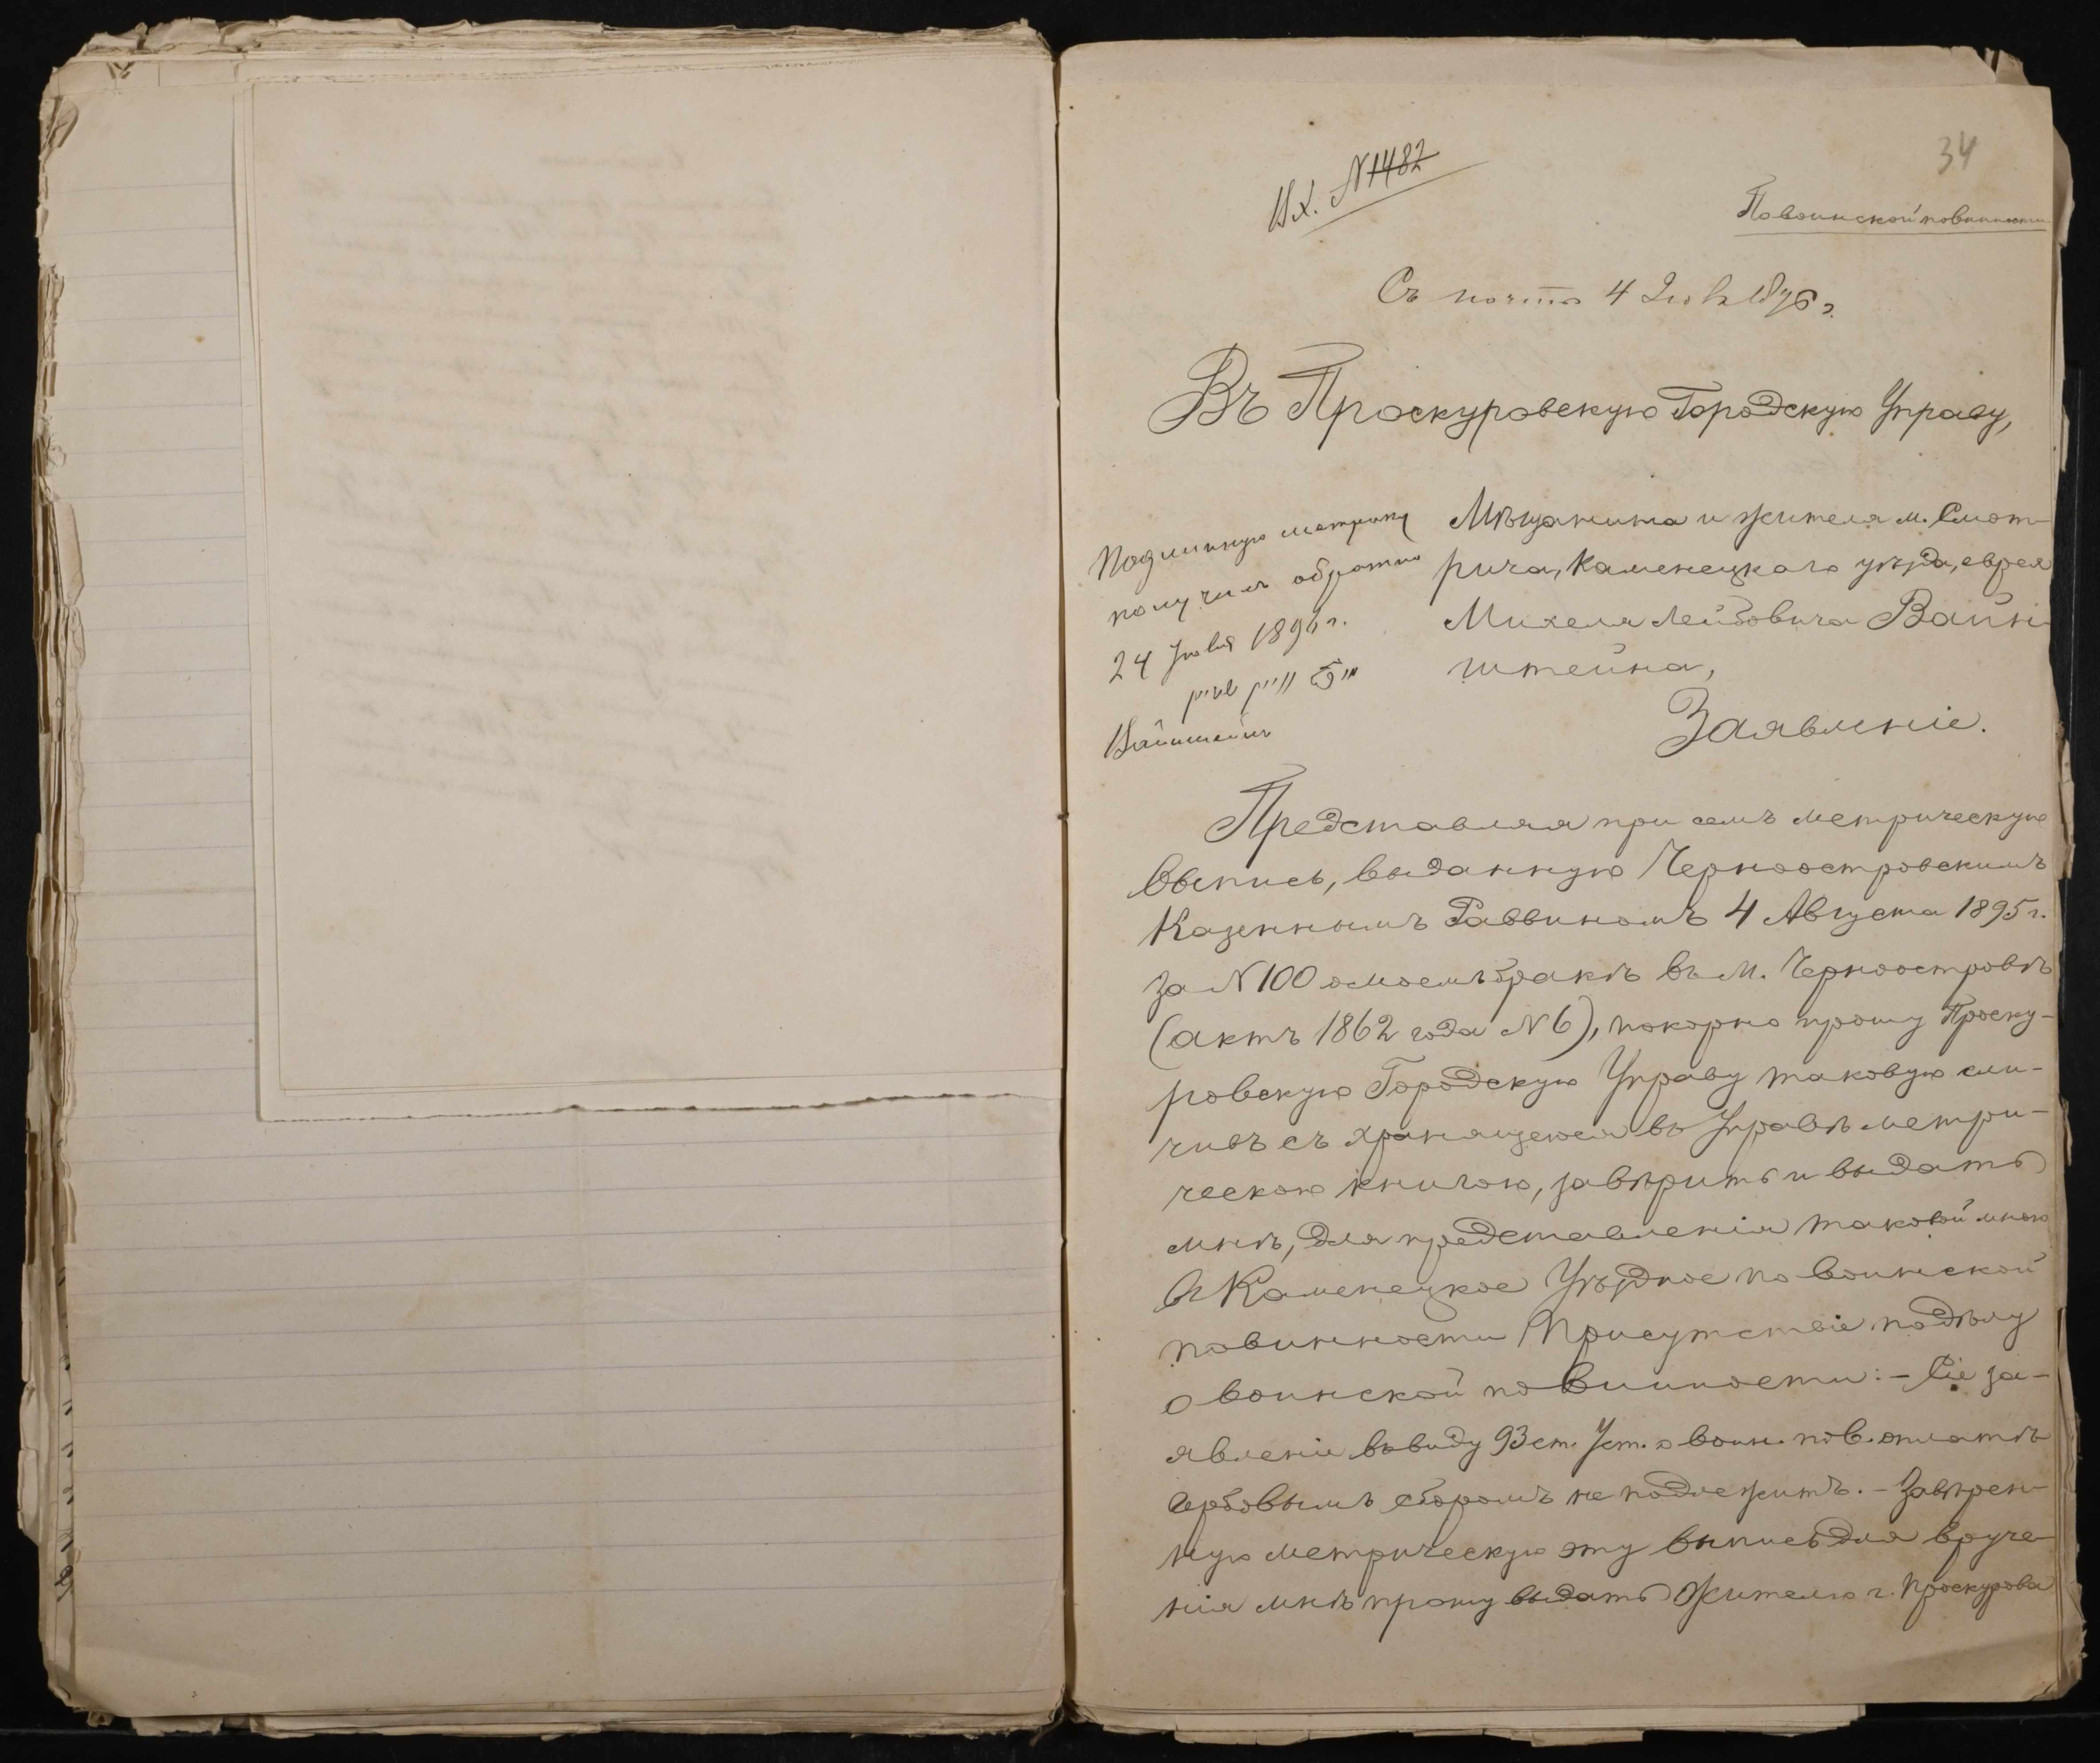 34
Вх. N 1482
По воинской повинности
Съ почты 4 Іюля 1896 г.
Въ Проскуровскую Городскую Управу,
Мѣщанина и жителя м. Смот-
рича, Каменецкаго уѣзда, еврея
Михеля Лейбовича Вайн-
штейна,
Заявленіе.
Подлинную метрику
получилъ обратно
24 Іюля 1896 г.
וויין שטיין
Вайнштейнъ
Представляя при семъ метрическую
выпись, выданную Черноостровскимъ
Казеннымъ Раввиномъ 4 Августа 1895 г.
за N 100 о моемъ бракѣ въ м. Черноостровѣ
(актъ 1862 года N 6), покорно прошу Проску-
ровскую Городскую Управу таковую сли-
чивъ съ хранящеюся въ Управѣ метри-
ческою книгою, завѣрить и выдать
мнѣ, для представленія таковой мною
въ Каменецкое Уѣздное по воинской
повинности Присутствіе по дѣлу
о воинской повинности:- Сіе за-
явленіе въ виду 93 ст. Уст. о воин. пов. оплатѣ
гербовымъ сборомъ не подлежитъ. - Завѣрен-
ную метрическую эту выпись для вруче-
нія мнѣ прошу выдать жителю г. Проскурова